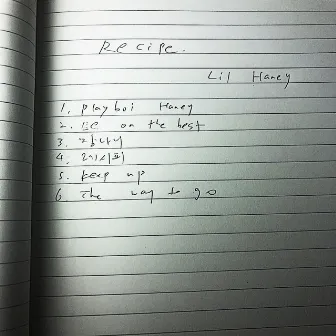 Recipe.
Lil Haney
1. playboi Haney
2. on the best
3.
4. 레시피
5. keep up
6. The way to go